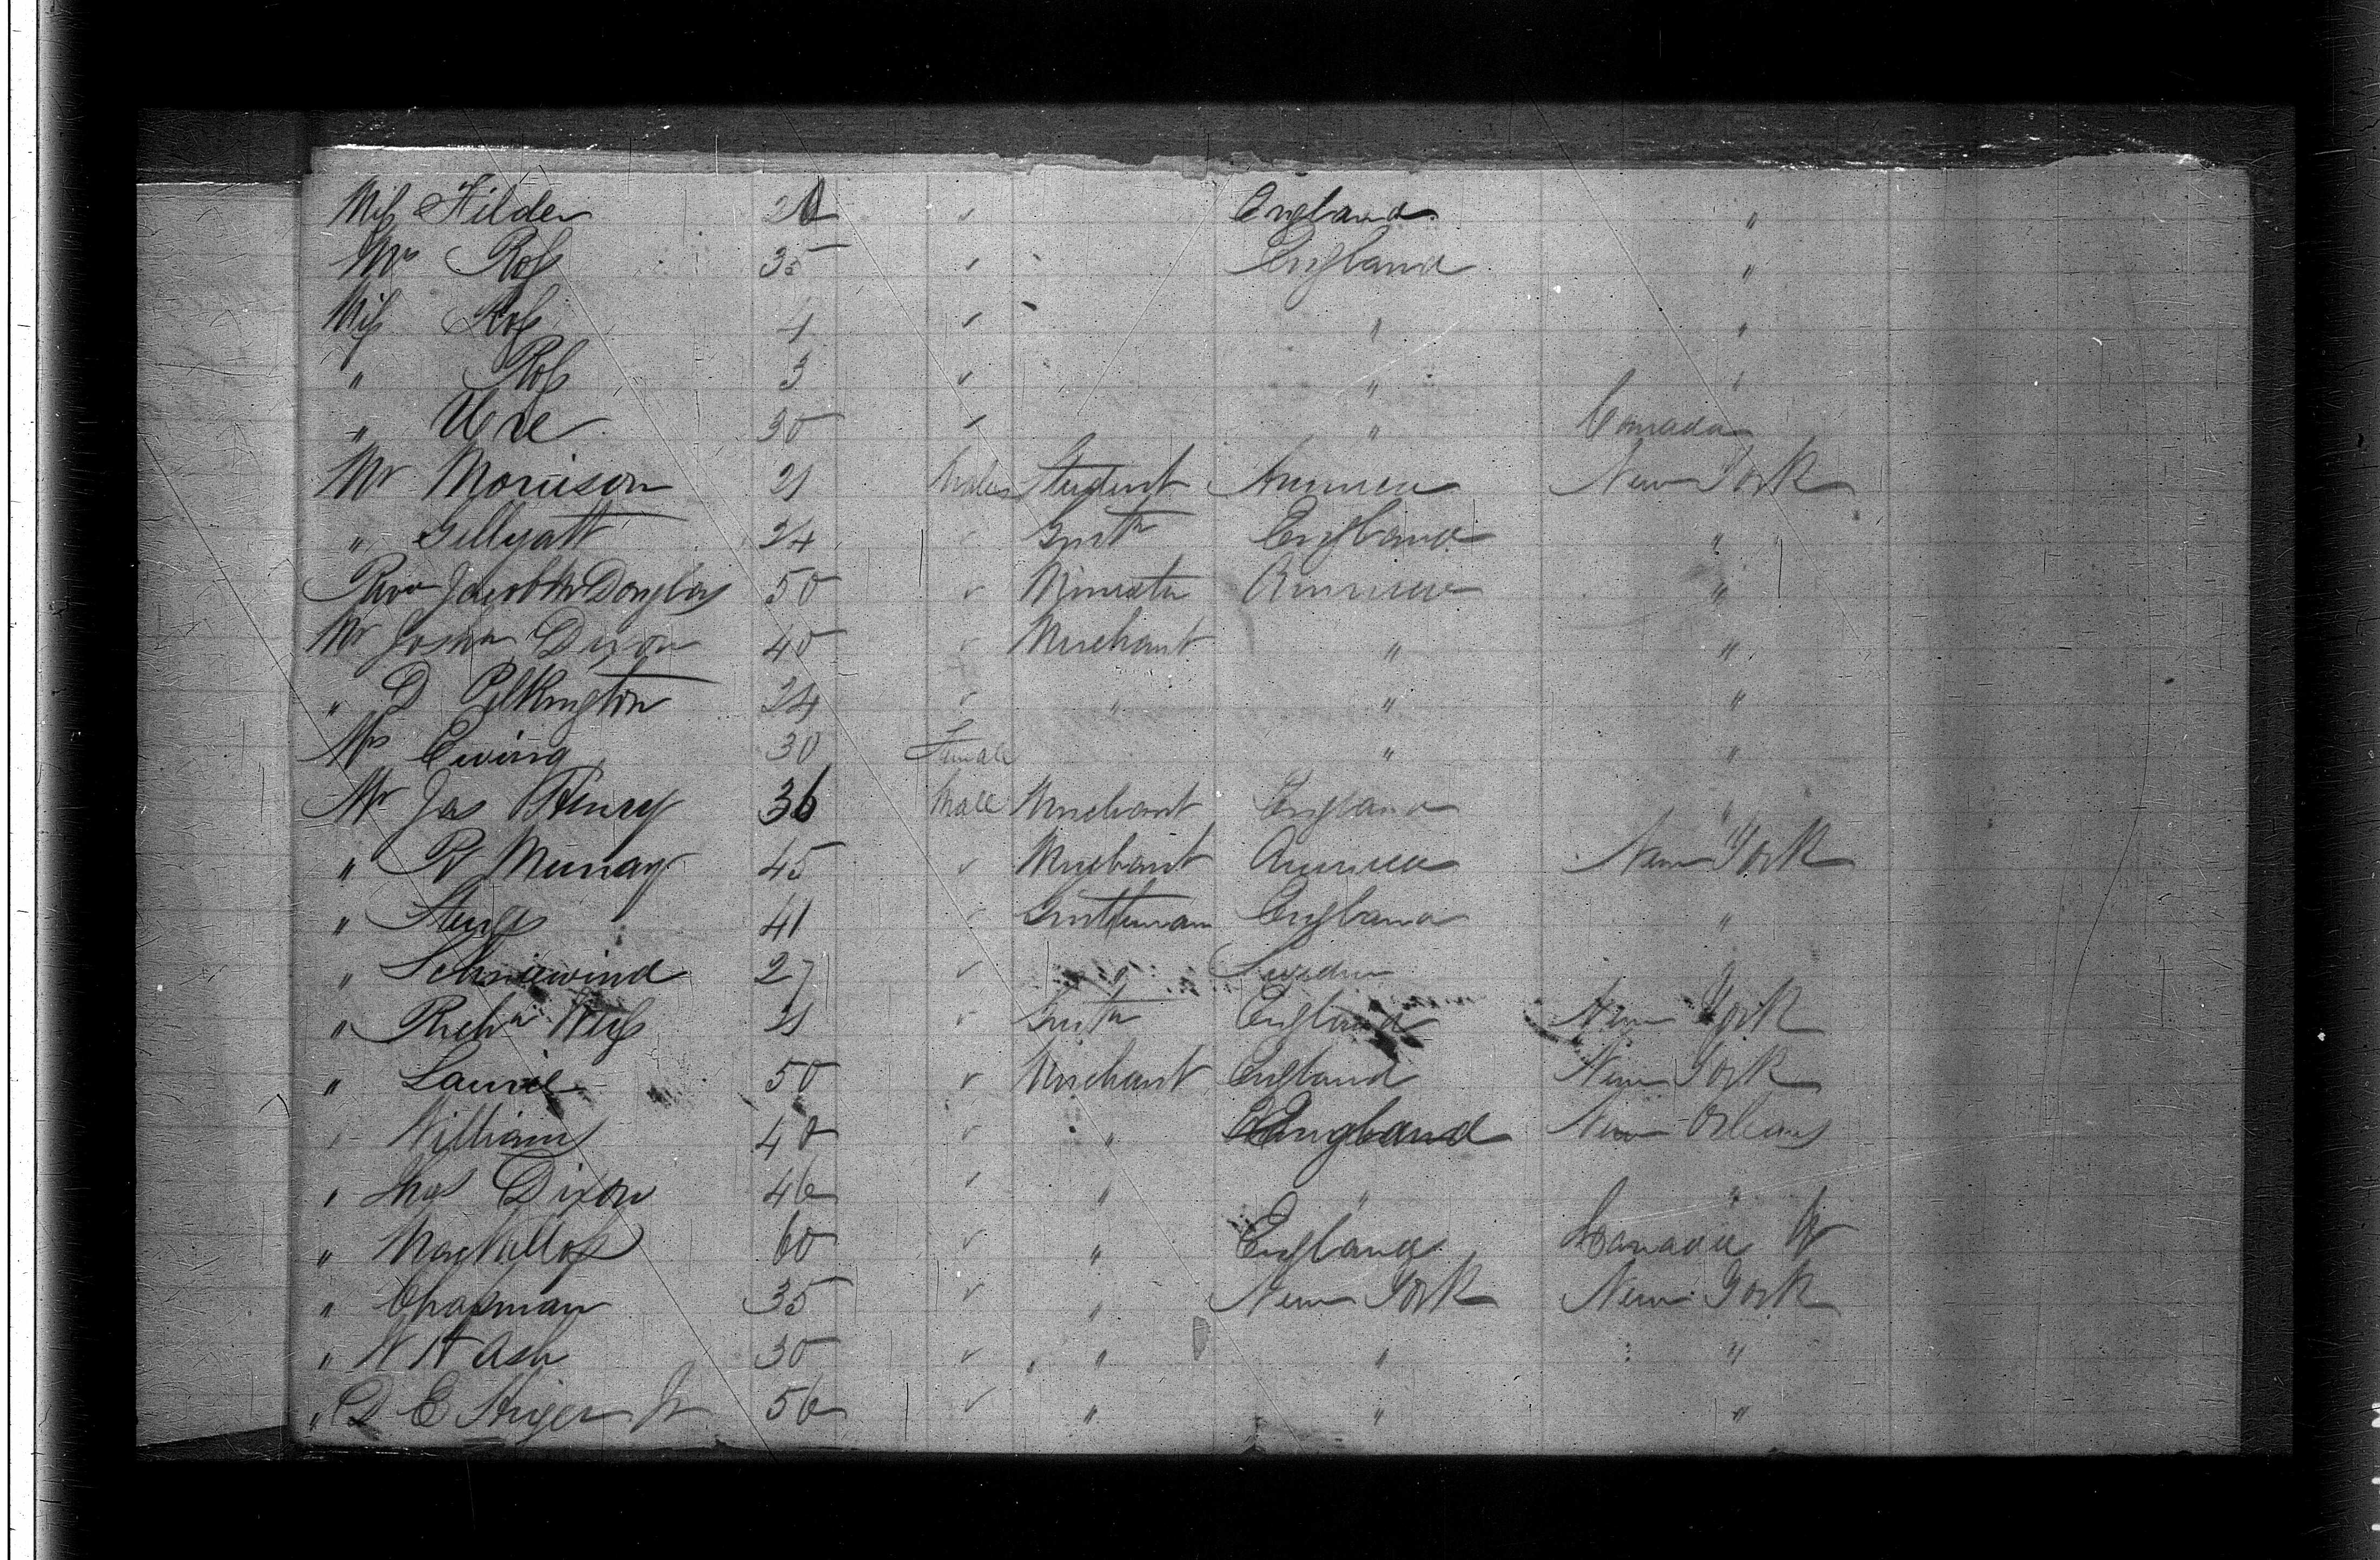 Miss Hilder 20 ✓ England "
Mrs Ross 35 ✓ England "
Miss Ross 4 ✓ " "
" Ross 3 ✓ " "
" Ure 30 ✓ " Canada
Mr Morrison 21 Males Student America New York
" Gellyatt 24 ✓ Gentn England "
Revd Jacob Douglas 50 ✓ Minister America "
Mr Joshua Dixon 40 ✓ Merchant " "
" D Pilkington 24 ✓ " " "
Mrs Ewing 30 Female " "
Mr Jas Henry 36 Male Merchant England "
" R Murray 45 ✓ Merchant America New York
" 41 ✓ Gentleman England "
" Schniewind 27 ✓ " Sweden "
" Richd 21 ✓ Gentn England New York
" Laurie 50 ✓ Merchant England New York
" Williams 40 ✓ " England New Orleans
" Thos Dixon 46 ✓ " " "
" 60 ✓ " England Canada W
" Chapman 35 ✓ " New York New York
" N H Ash 30 ✓ " " "
" D E Jr 56 ✓ " " "